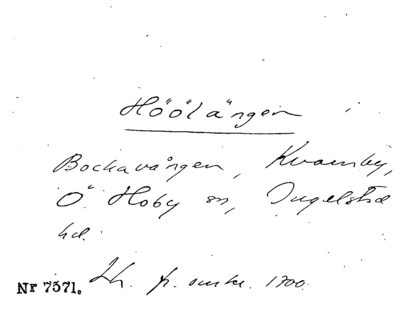 Höölängen
Bockavången, Kvarnby,
Ö Hoby sn, Ingelstad
hd.
Nr 7571. fr. omkr. 1700.